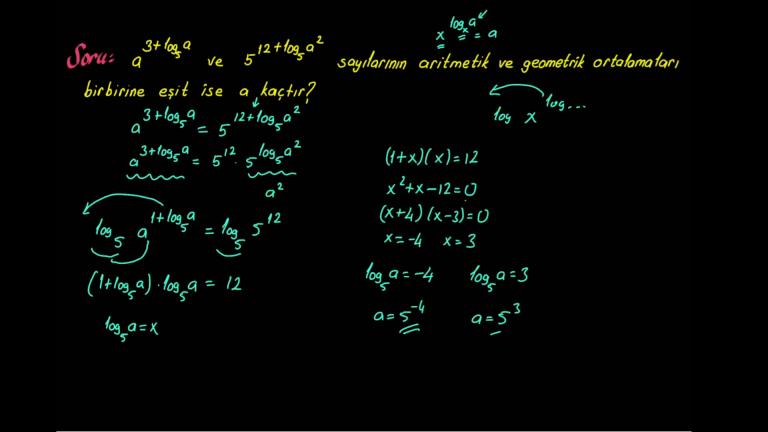 x^(log_x a) = a
Soru: a^(3+log₅a) ve 5^(12+log₅a²) sayılarının aritmetik ve geometrik ortalamaları
birbirine eşit ise a kaçtır?
a^(3+log₅a) = 5^(12+log₅a²)
a^(3+log₅a) = 5^12 · 5^(log₅a²)
a²
log₅ a^(1+log₅a) = log₅ 5^12
(1+log₅a)·log₅a = 12
log₅a = x
log x^(log...)
(1+x)(x) = 12
x²+x-12=0
(x+4)(x-3)=0
x=-4 x=3
log₅a=-4 log₅a=3
a=5^-4 a=5^3